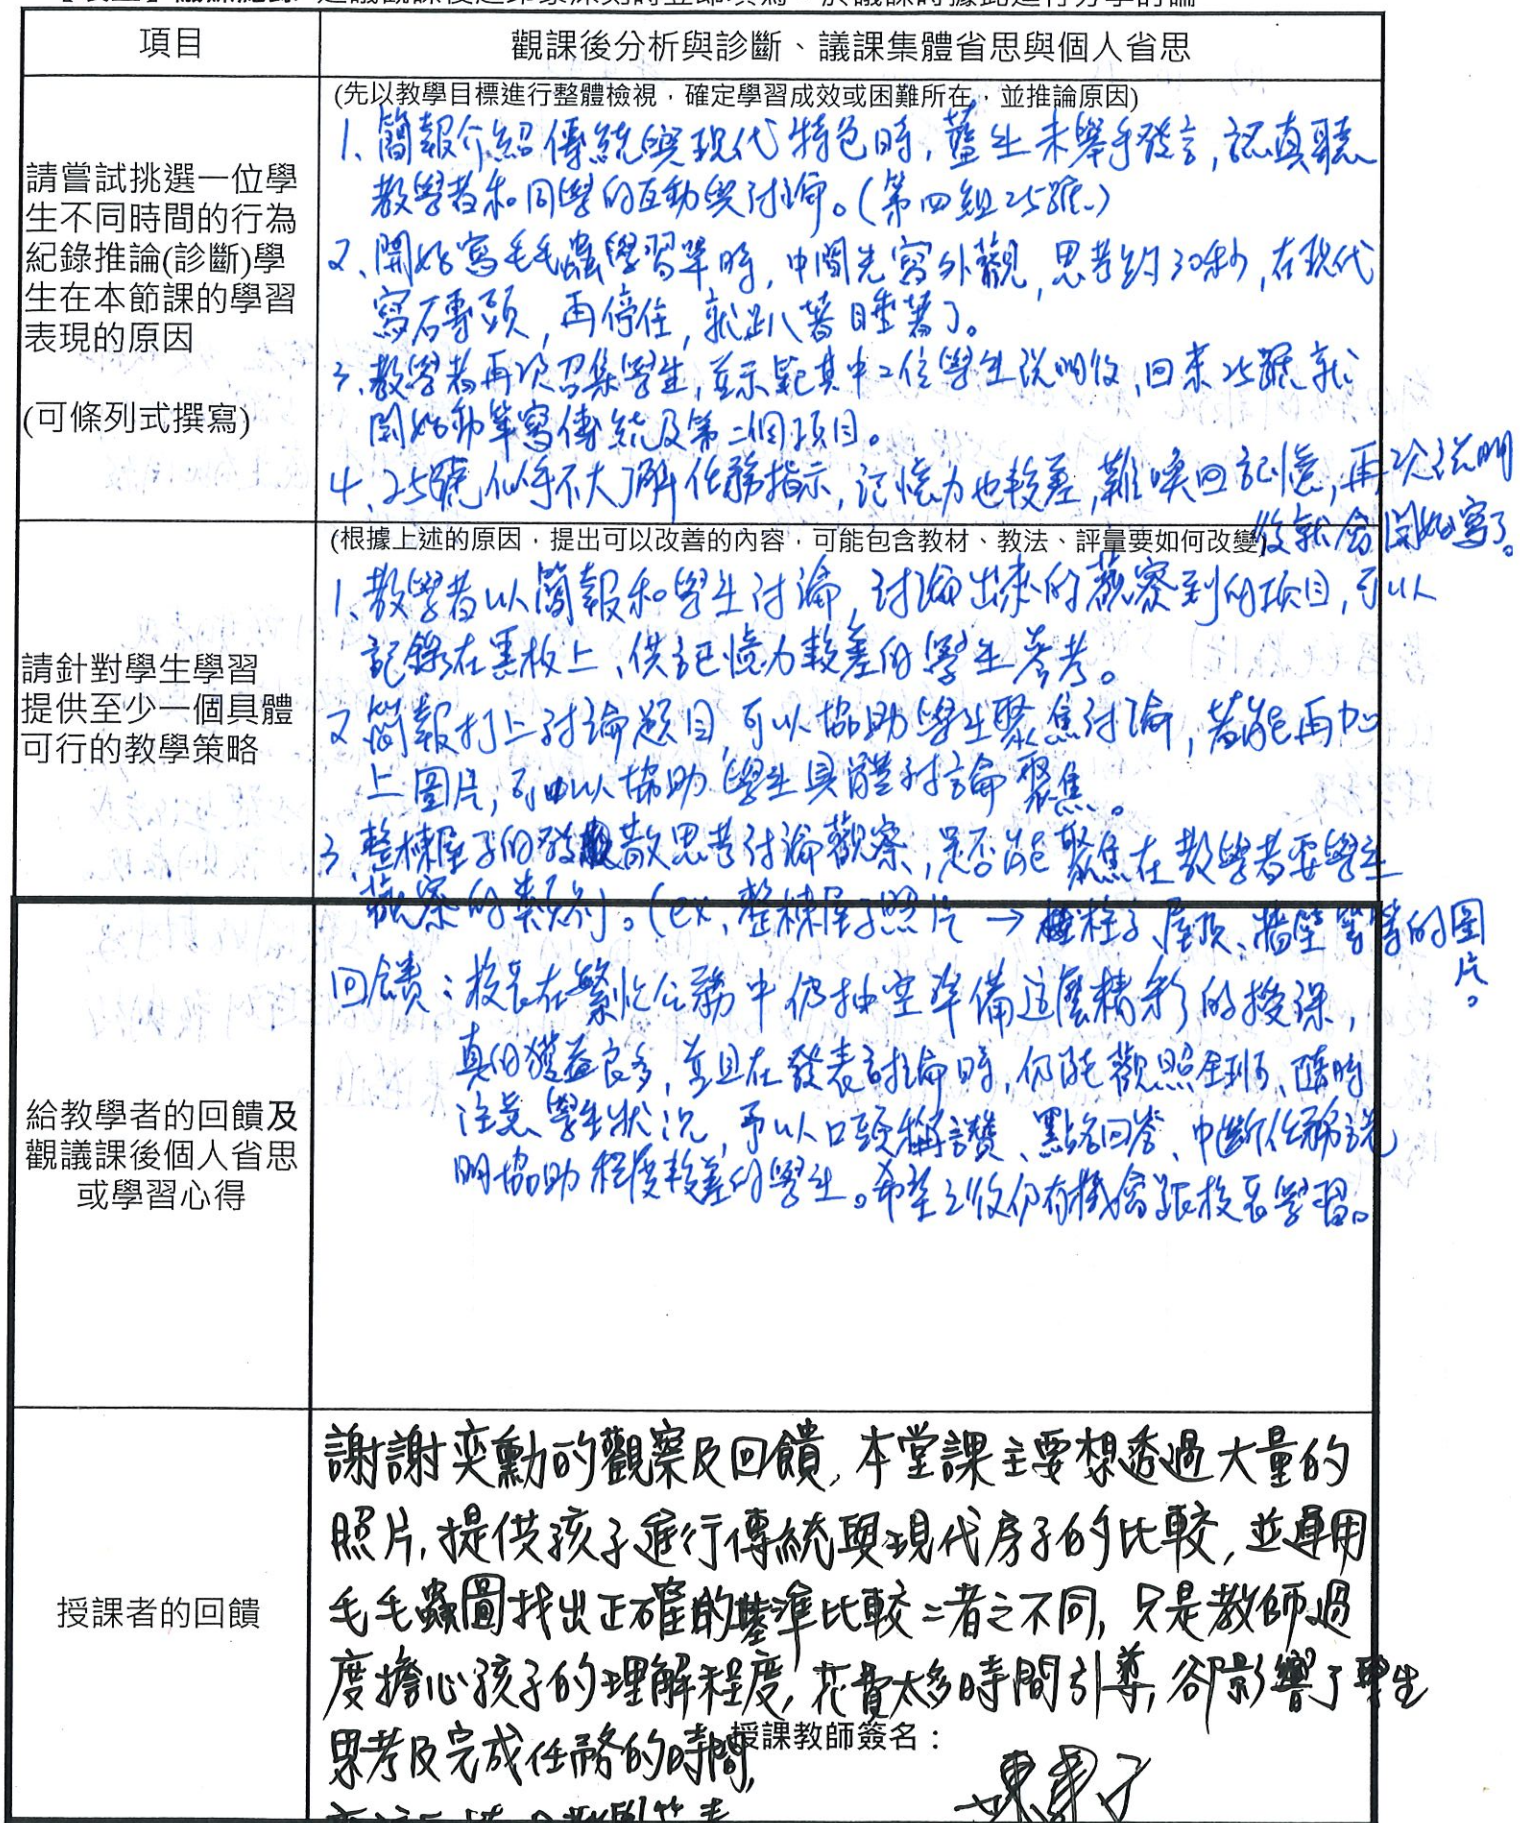 項目
觀課後分析與診斷、議課集體省思與個人省思
請嘗試挑選一位學
生不同時間的行為
紀錄推論(診斷)學
生在本節課的學習
表現的原因
(可條列式撰寫)
(先以教學目標進行整體檢視，確定學習成效或困難所在，並推論原因)
1、簡報介紹傳統與現代特色時，藍生未舉手發言，認真聽
教學者和同學的互動與討論。(第四組25號)
2、開始寫毛毛蟲學習單時，中間先寫外觀，思考約30秒，在現代
寫石專頭，再停住，就趴著睡著了。
3、教學者再次召集學生，並示範其中2位學生說明後，回來25號就
開始動筆寫傳統及第二個項目。
4、25號似乎不大了解任務指示，記憶力也較差，難喚回記憶，再次說明
後就會開始寫了。
請針對學生學習
提供至少一個具體
可行的教學策略
(根據上述的原因，提出可以改善的內容，可能包含教材、教法、評量要如何改變)
1、教學者以簡報和學生討論，討論出來的觀察到的項目，可以
記錄在黑板上，供記憶力較差的學生參考。
2、簡報打上討論題目，可以協助學生聚焦討論，若能再加
上圖片，可以協助學生具體討論聚焦。
3、整棟屋子的發散思考討論觀察，是否能聚焦在教學者要學生
觀察的類別。(ex、整棟屋子照片→柱子、屋頂、牆壁等等的圖
片。
給教學者的回饋及
觀議課後個人省思
或學習心得
回饋：校長在繁忙公務中仍抽空準備這麼精彩的授課，
真的獲益良多，並且在發表討論時，仍能觀照全班、隨時
注意學生狀況，予以口頭稱讚、點名回答、中斷任務說
明協助程度較差的學生。希望之後仍有機會跟校長學習。
授課者的回饋
謝謝奕勳的觀察及回饋，本堂課主要想透過大量的
照片，提供孩子進行傳統與現代房子的比較，並運用
毛毛蟲圖找出正確的基準比較二者之不同，只是教師過
度擔心孩子的理解程度，花費太多時間引導，卻影響了學生
思考及完成任務的時間，
授課教師簽名：